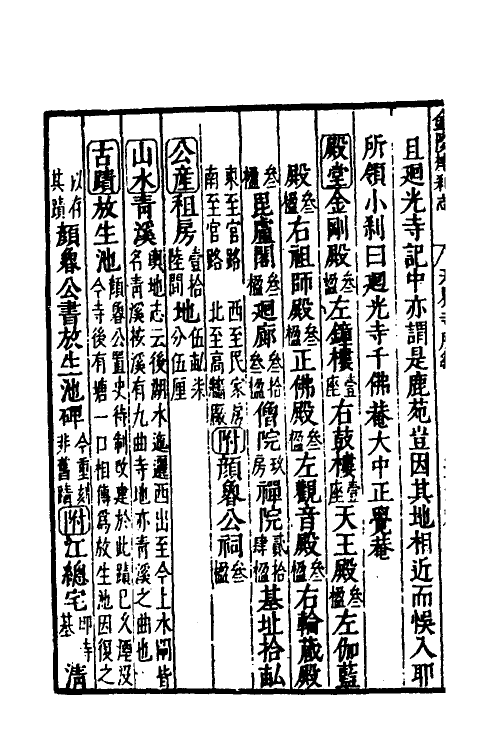 且廻光寺記中亦謂是鹿苑豈因其地相近而悞入耶
所領小刹曰廻光寺千佛菴大中正覺菴
殿堂金剛殿叁楹左鐘樓壹座右鼓樓壹座天王殿叁楹左伽藍
殿叁楹右祖師殿叁楹正佛殿叁楹左觀音殿叁楹右輪藏殿
叁楹毘盧閣叁楹廻廊叁楹僧院玖房禪院貳拾肆楹基址拾畝
東至官路 西至民家房
南至官路 北至高牆廠
附顔魯公祠叁楹
公産租房壹拾陸間地伍畝柒分伍厘
山水青溪輿地志云後湖水迤邐西出至今上水閘皆名青溪按溪有九曲寺地亦青溪之曲也
古蹟放生池顔魯公置史待制改建於此蹟已久湮没今寺後有塘一口相傳爲放生池因復之以存其蹟顔魯公書放生池碑今重刻非舊蹟附江總宅即寺基 清